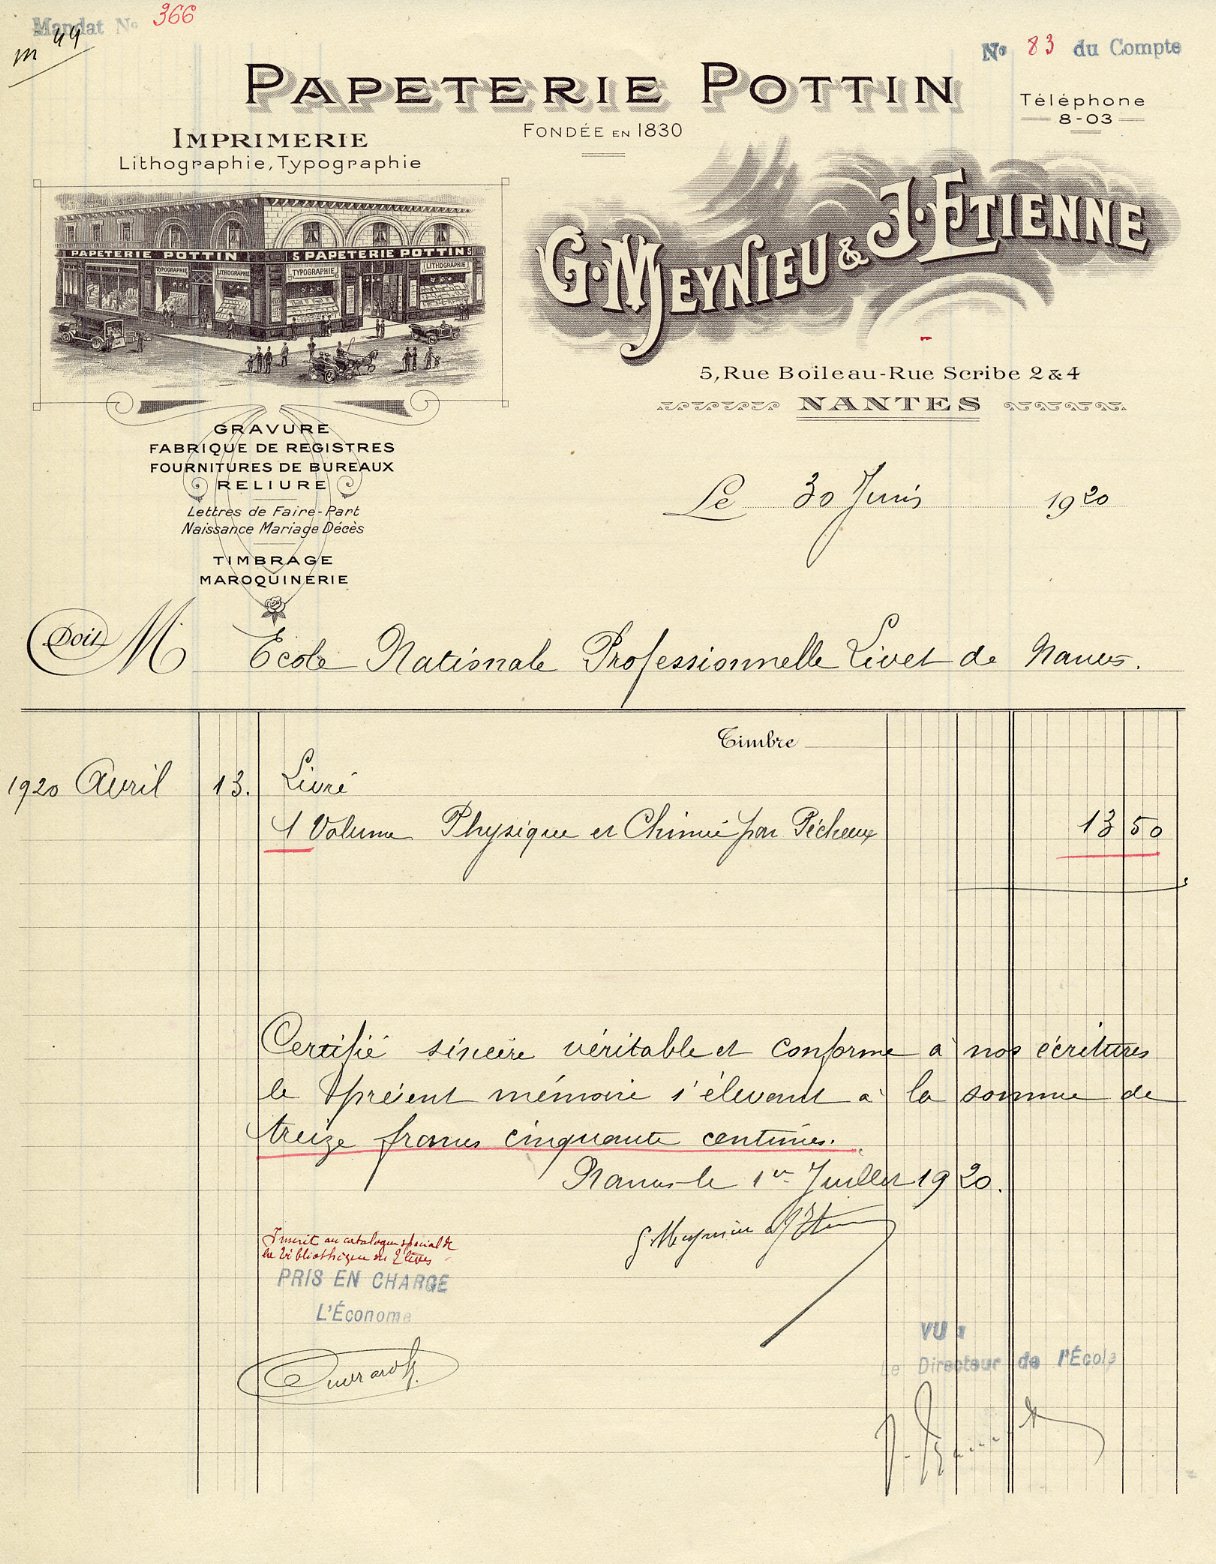 Mandat No 366
m 49
No 83 du Compte
PAPETERIE POTTIN
Téléphone
8-03
FONDÉE EN 1830
IMPRIMERIE
Lithographie, Typographie
PAPETERIE POTTIN
5 PAPETERIE POTTIN 5
TYPOGRAPHIE
LITHOGRAPHIE
TYPOGRAPHIE
LITHOGRAPHIE
G. MEYNIEU & J. ETIENNE
5, Rue Boileau-Rue Scribe 2 & 4
NANTES
GRAVURE
FABRIQUE DE REGISTRES
FOURNITURES DE BUREAUX
RELIURE
Lettres de Faire-Part
Naissance Mariage Décès
TIMBRAGE
MAROQUINERIE
Le 30 Juin 1920
Doit M Ecole Nationale Professionnelle Livet de Nantes.
Timbre
1920 Avril 13. Livré
1 Volume Physique et Chimie par Pécheux 13 50
Certifié sincère véritable et conforme à nos écritures
le présent mémoire s'élevant à la somme de
treize francs cinquante centimes.
Nantes le 1er Juillet 1920.
G. Meynieu & J. Etienne
Inscrit au catalogue spécial de
la Bibliothèque des Elèves
PRIS EN CHARGE
L'Économe
VU :
Le Directeur de l'École